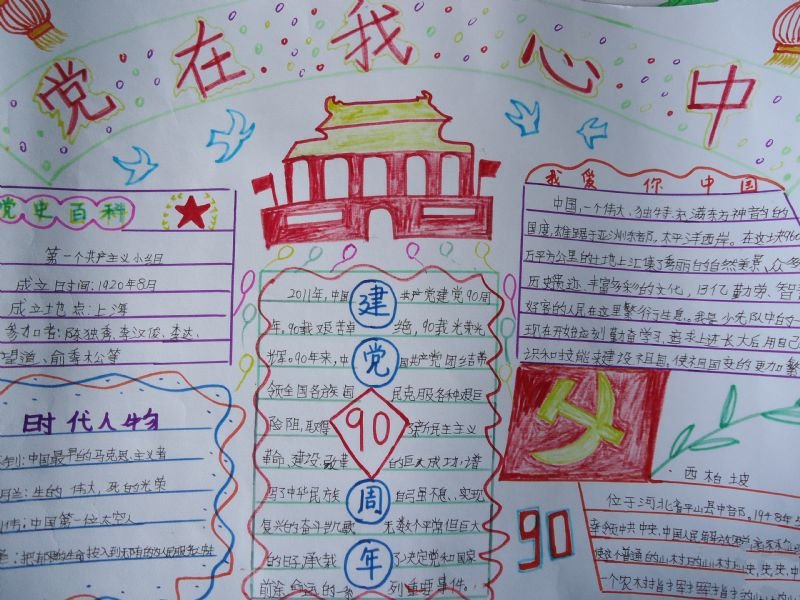 党在我心中
党史百科
第一个共产主义小组
成立日时间:1920年8月
成立地点:上海
参加者:陈独秀、李汉俊、李达、
望道、俞秀松等
时代人物
中国最早的马克思主义者
生的伟大,死的光荣
中国第一位太空人
建党90周年
2011年,中国共产党建党90周
年,90载艰苦卓绝,90载光荣光
辉。90年来,中国共产党团结带
领全国各族国民克服各种艰巨
险阻,取得了新民主主义
革命、建设、改革的巨大成功,谱
写了中华民族自弓虽不息、实现
复兴的奋斗
无数个平常但巨大
的日子,承载了决定党和国家
前途命运的一系列重要事件。
我爱你中国
中国,一个伟大、独特、充满东方神奇色的
国度,雄踞于亚洲东部,太平洋西岸。在这块960
万平方公里的土地上汇集了秀丽的自然美景、众多
历史遗迹、丰富多彩的文化,13亿勤劳、智
好客的人民在这里繁衍生息。我是小先队中的一
现在开始应刻勤奋学习,追求上进长大后用自己
识和技能来建设祖国,使祖国变的更加繁
90
西柏坡
位于河北省平山县中部。1948年5
中共中央、中国人民解放
使这个普通的山村
一个农村指挥